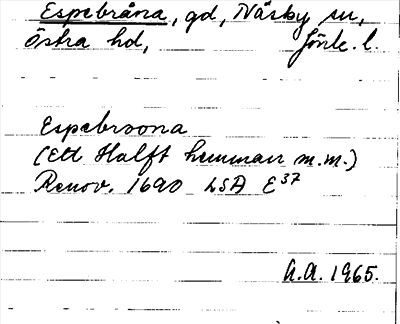 Espebråna, gd, Näsby sn,
Östra hd, Jönk. l.
Espebroona
(Ett Halft hemman m.m.)
Renov. 1690 LSA E37
A.A. 1965.